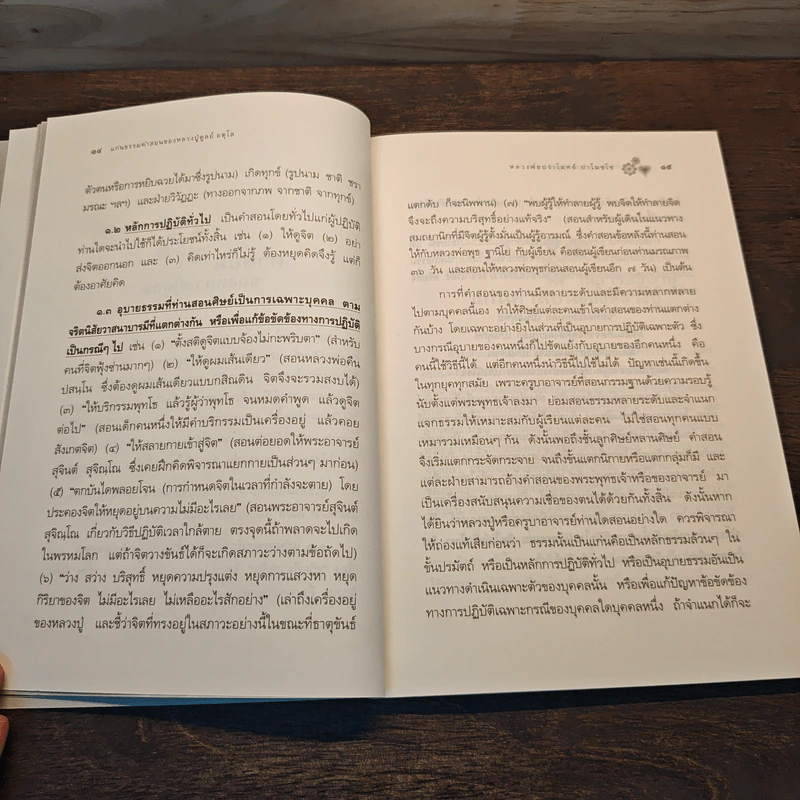 ๑๔ แก่นธรรมคำสอนของหลวงปู่ดูลย์ อตุโล
ตัวตนหรือการหยิบฉวยได้มาซึ่งรูปนาม) เกิดทุกข์ (รูปนาม ชาติ ชรา
มรณะ ฯลฯ) และฝ่ายวิวัฏฏะ (ทางออกจากภพ จากชาติ จากทุกข์)
๑.๒ หลักการปฏิบัติทั่วไป เป็นคำสอนโดยทั่วไปแก่ผู้ปฏิบัติ
ท่านใดจะนำไปใช้ก็ได้ประโยชน์ทั้งสิ้น เช่น (๑) ให้ดูจิต (๒) อย่า
ส่งจิตออกนอก และ (๓) คิดเท่าไหร่ก็ไม่รู้ ต้องหยุดคิดจึงรู้ แต่ก็
ต้องอาศัยคิด
๑.๓ อุบายธรรมที่ท่านสอนศิษย์เป็นการเฉพาะบุคคล ตาม
จริตนิสัยวาสนาบารมีที่แตกต่างกัน หรือเพื่อแก้ข้อขัดข้องทางการปฏิบัติ
เป็นกรณีๆ ไป เช่น (๑) "ตั้งสติดูจิตแบบจ้องไม่กะพริบตา" (สำหรับ
คนที่จิตฟุ้งซ่านมากๆ) (๒) "ให้ดูผมเส้นเดียว" (สอนหลวงพ่อคืน
ปสนฺโน ซึ่งต้องดูผมเส้นเดียวแบบกสิณดิน จิตจึงจะรวมสงบได้)
(๓) "ให้บริกรรมพุทโธ แล้วรู้ผู้ว่าพุทโธ จนหมดคำพูด แล้วดูจิต
ต่อไป" (สอนเด็กคนหนึ่งให้มีคำบริกรรมเป็นเครื่องอยู่ แล้วคอย
สังเกตจิต) (๔) "ให้สลายกายเข้าสู่จิต" (สอนต่อยอดให้พระอาจารย์
สุจินต์ สุจิณฺโณ ซึ่งเคยฝึกคิดพิจารณาแยกกายเป็นส่วนๆ มาก่อน)
(๕) "ตกบันไดพลอยโจน (การกำหนดจิตในเวลาที่กำลังจะตาย) โดย
ประคองจิตให้หยุดอยู่บนความไม่มีอะไรเลย" (สอนพระอาจารย์สุจินต์
สุจิณฺโณ เกี่ยวกับวิธีปฏิบัติเวลาใกล้ตาย ตรงจุดนี้ถ้าพลาดจะไปเกิด
ในพรหมโลก แต่ถ้าจิตวางขันธ์ได้ก็จะเกิดสภาวะว่างตามข้อถัดไป)
(๖) "ว่าง สว่าง บริสุทธิ์ หยุดความปรุงแต่ง หยุดการแสวงหา หยุด
กิริยาของจิต ไม่มีอะไรเลย ไม่เหลืออะไรสักอย่าง" (เล่าถึงเครื่องอยู่
ของหลวงปู่ และชี้ว่าจิตที่ทรงอยู่ในสภาวะอย่างนี้ในขณะที่ธาตุขันธ์
หลวงพ่อปราโมทย์ ปาโมชฺโช ๑๕
แตกดับ ก็จะนิพพาน) (๗) "พบผู้รู้ให้ทำลายผู้รู้ พบจิตให้ทำลายจิต
จึงจะถึงความบริสุทธิ์อย่างแท้จริง" (สอนสำหรับผู้เดินในแนวทาง
สมถยานิกที่มีจิตผู้รู้ตั้งมั่นเป็นผู้รู้อารมณ์ ซึ่งคำสอนข้อหลังนี้ท่านสอน
ให้กับหลวงพ่อพุธ ฐานิโย กับผู้เขียน คือสอนผู้เขียนก่อนท่านมรณภาพ
๓๖ วัน และสอนให้หลวงพ่อพุธก่อนสอนผู้เขียนอีก ๗ วัน) เป็นต้น
การที่คำสอนของท่านมีหลายระดับและมีความหลากหลาย
ไปตามบุคคลนี้เอง ทำให้ศิษย์แต่ละคนเข้าใจคำสอนของท่านแตกต่าง
กันบ้าง โดยเฉพาะอย่างยิ่งในส่วนที่เป็นอุบายการปฏิบัติเฉพาะตัว ซึ่ง
บางกรณีอุบายของคนหนึ่งก็ไปขัดแย้งกับอุบายของอีกคนหนึ่ง คือ
คนนี้ใช้วิธีนี้ได้ แต่อีกคนหนึ่งนำวิธีนี้ไปใช้ไม่ได้ ปัญหาเช่นนี้เกิดขึ้น
ในทุกยุคทุกสมัย เพราะครูบาอาจารย์ที่สอนกรรมฐานด้วยความรอบรู้
นับตั้งแต่พระพุทธเจ้าลงมา ย่อมสอนธรรมหลายระดับและจำแนก
แจกธรรมให้เหมาะสมกับผู้เรียนแต่ละคน ไม่ใช่สอนทุกคนแบบ
เหมารวมเหมือนๆ กัน ดังนั้นพอถึงชั้นลูกศิษย์หลานศิษย์ คำสอน
จึงเริ่มแตกกระจัดกระจาย จนถึงขั้นแตกนิกายหรือแตกกลุ่มก็มี และ
แต่ละฝ่ายสามารถอ้างคำสอนของพระพุทธเจ้าหรือของอาจารย์ มา
เป็นเครื่องสนับสนุนความเชื่อของตนได้ด้วยกันทั้งสิ้น ดังนั้นหาก
ได้ยินว่าหลวงปู่หรือครูบาอาจารย์ท่านใดสอนอย่างใด ควรพิจารณา
ให้ถ่องแท้เสียก่อนว่า ธรรมนั้นเป็นแก่นคือเป็นหลักธรรมล้วนๆ ใน
ขั้นปรมัตถ์ หรือเป็นหลักการปฏิบัติทั่วไป หรือเป็นอุบายธรรมอันเป็น
แนวทางดำเนินเฉพาะตัวของบุคคลนั้น หรือเพื่อแก้ปัญหาข้อขัดข้อง
ทางการปฏิบัติเฉพาะกรณีของบุคคลใดบุคคลหนึ่ง ถ้าจำแนกได้ก็จะ